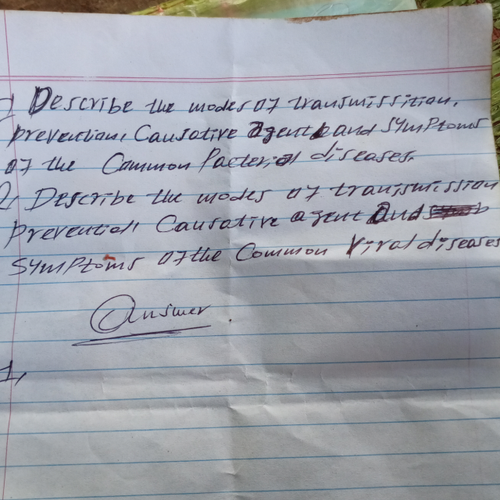 1 Describe the modes of transmisstion,
prevention, Causative agent and symptoms
of the Common Pacterial diseases.
2, Describe the modes of transmission
Prevention, Causative agent and
symptoms of the Common Viral diseases
Answer.
1,